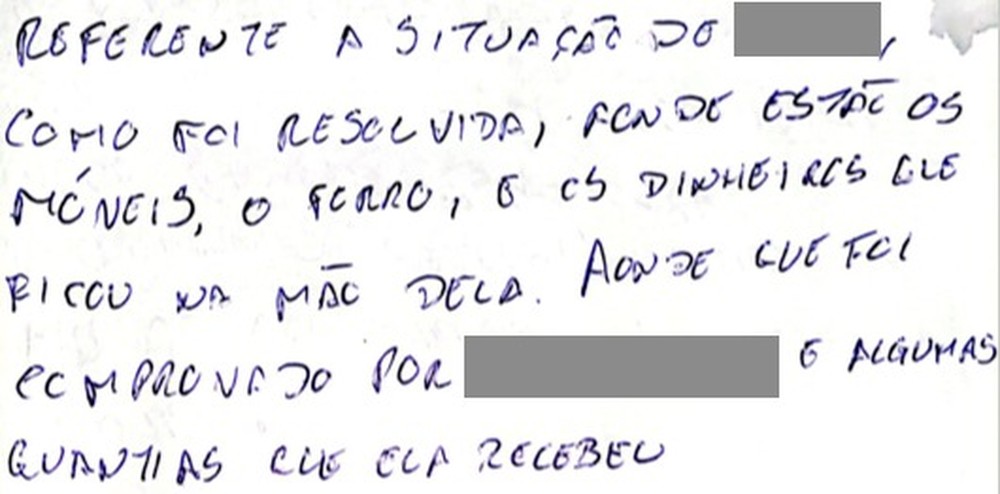 REFERENTE A SITUAÇÃO DE ,
COMO FOI RESOLVIDA, AONDE ESTÃO OS
MÓVEIS, O FERRO, E OS DINHEIROS QUE
FICOU NA MÃO DELA. AONDE QUE FOI
COMPROVADO POR E ALGUMAS
QUANTIAS QUE ELA RECEBEU